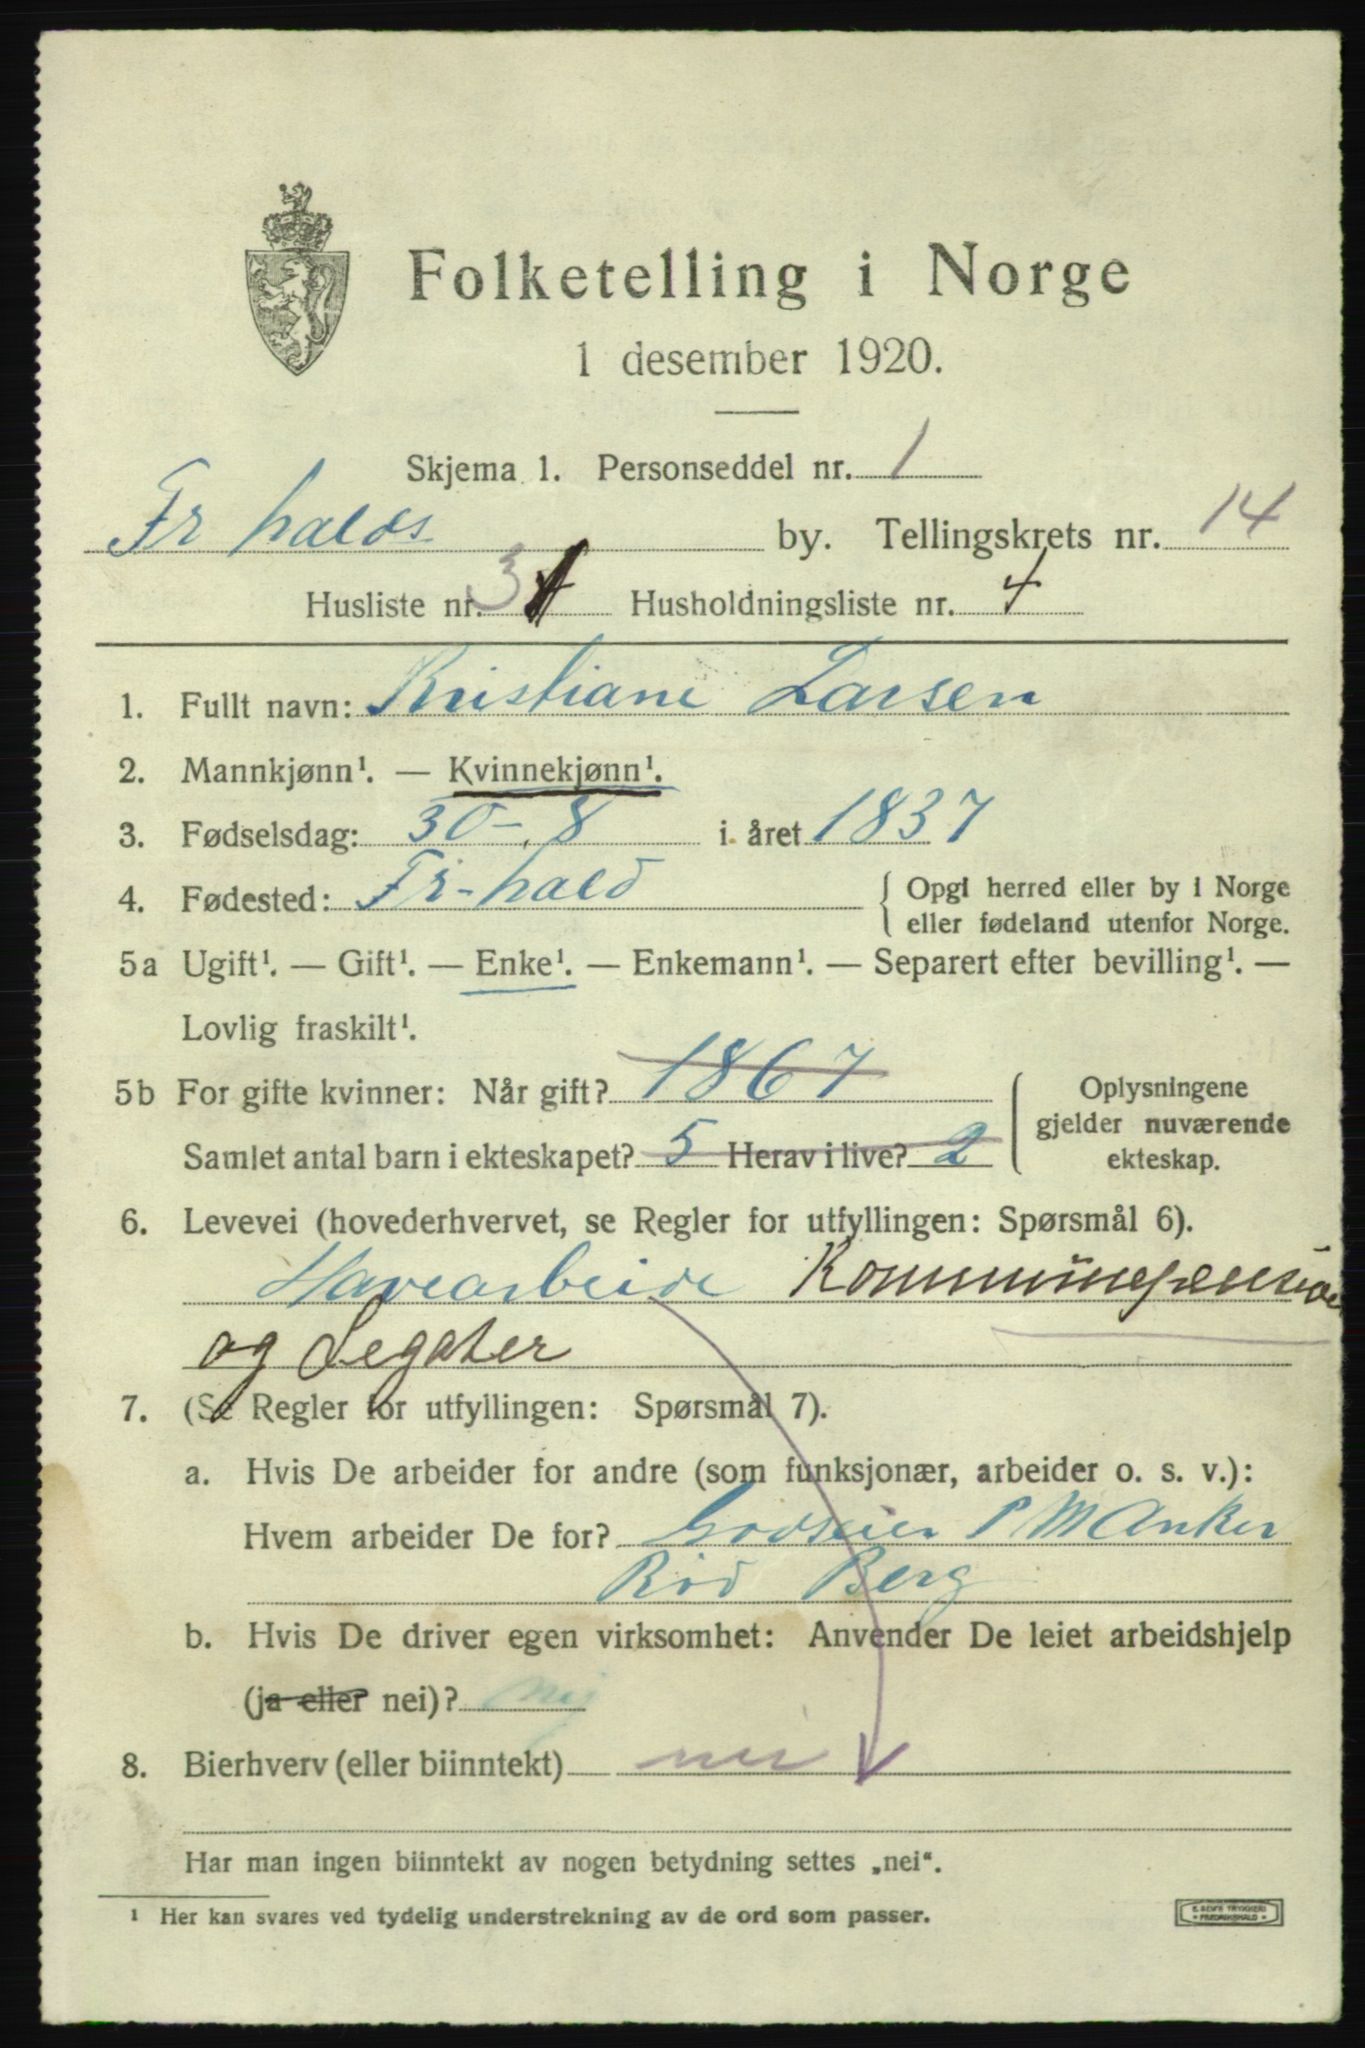 Folketelling i Norge
1 desember 1920.
Skjema 1. Personseddel nr. 1
Fr halds by. Tellingskrets nr. 14
Husliste nr. 3 Husholdningsliste nr. 4
1. Fullt navn: Kristiane Larsen
2. Mannkjønn¹. — Kvinnekjønn¹.
3. Fødselsdag: 30-8 i året 1837
4. Fødested: Fr-hald { Opgi herred eller by i Norge
eller fødeland utenfor Norge.
5a Ugift¹. — Gift¹. — Enke¹. — Enkemann¹. — Separert efter bevilling¹. —
Lovlig fraskilt¹.
5b For gifte kvinner: Når gift? 1867
Samlet antal barn i ekteskapet? 5 Herav i live? 2
Oplysningene
gjelder nuværende
ekteskap.
6. Levevei (hovederhvervet, se Regler for utfyllingen: Spørsmål 6).
Havearbeide Kommunepension
og Legater
7. (Se Regler for utfyllingen: Spørsmål 7).
a. Hvis De arbeider for andre (som funksjonær, arbeider o. s. v.):
Hvem arbeider De for? Godseier P M Anker
Rød Berg
b. Hvis De driver egen virksomhet: Anvender De leiet arbeidshjelp
(ja eller nei)? nej
8. Bierhverv (eller biinntekt) nei
Har man ingen biinntekt av nogen betydning settes „nei“.
¹ Her kan svares ved tydelig understrekning av de ord som passer.
E. SEMS TRYKKERI
FREDRIKSHALD